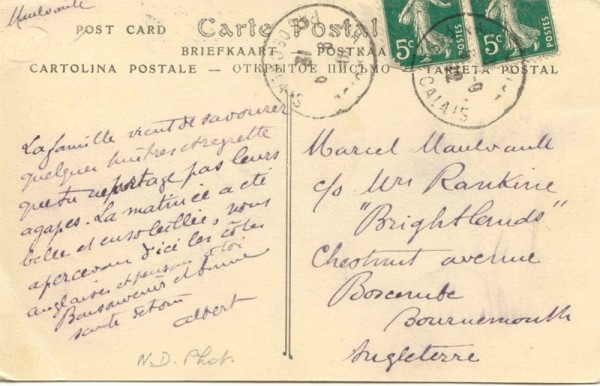 Maulvault
POST CARD Carte Postale
BRIEFKAART POSTKAA
CARTOLINA POSTALE — ОТКРЫТОЕ ПИСЬМО — TARJETA POSTAL
5c
5c
CALAIS
La famille vient de savourer
quelques huîtres et regrette
que tu ne partage pas leurs
agapes. La matinée a été
belle et ensoleillée, nous
apercevons d'ici les côtes
anglaises et pensons à toi
Bons souvenirs et bonne
santé de tous
Albert
N.D. Phot.
Marcel Maulvault
c/o Mrs Rankine
"Brightlands"
Chestnut avenue
Boscombe
Bournemouth
Angleterre